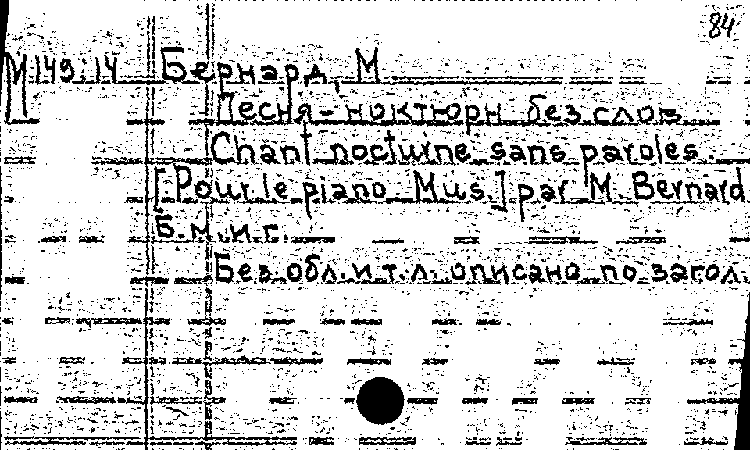 84
М149:14 Бернард, М.
Песня-ноктюрн без слов
Chant nocturne sans paroles.
[Pour le piano Mus.] par M. Bernard
Б.м.и.г.
Без обл.и т.л. описано по загол.